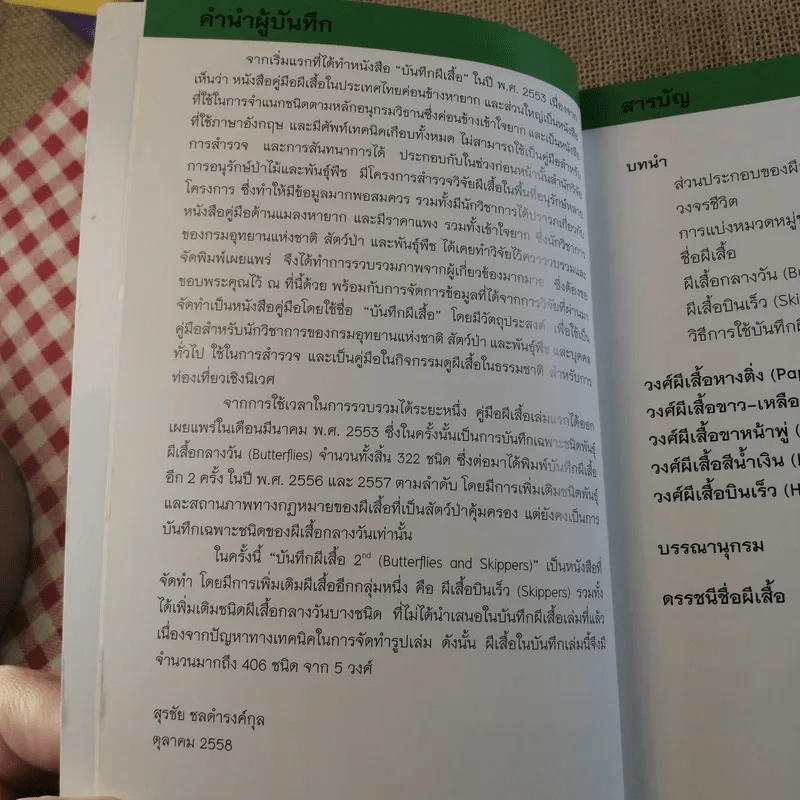 คำนำผู้บันทึก
จากเริ่มแรกที่ได้ทำหนังสือ “บันทึกผีเสื้อ” ในปี พ.ศ. 2553 เนื่องจาก
เห็นว่า หนังสือคู่มือผีเสื้อในประเทศไทยค่อนข้างหายาก และส่วนใหญ่เป็นหนังสือ
ที่ใช้ในการจำแนกชนิดตามหลักอนุกรมวิธานซึ่งค่อนข้างเข้าใจยาก และเป็นหนังสือ
ที่ใช้ภาษาอังกฤษ และมีศัพท์เทคนิคเกือบทั้งหมด ไม่สามารถใช้เป็นคู่มือสำหรับ
การสำรวจ และการสันทนาการได้ ประกอบกับในช่วงก่อนหน้านั้นสำนักวิจัย
การอนุรักษ์ป่าไม้และพันธุ์พืช มีโครงการสำรวจวิจัยผีเสื้อในพื้นที่อนุรักษ์หลาย
โครงการ ซึ่งทำให้มีข้อมูลมากพอสมควร รวมทั้งมีนักวิชาการได้ปรารภเกี่ยวกับ
หนังสือคู่มือด้านแมลงหายาก และมีราคาแพง รวมทั้งเข้าใจยาก ซึ่งนักวิชาการ
ของกรมอุทยานแห่งชาติ สัตว์ป่า และพันธุ์พืช ได้เคยทำวิจัยไว้ควรรวบรวมและ
จัดพิมพ์เผยแพร่ จึงได้ทำการรวบรวมภาพจากผู้เกี่ยวข้องมากมาย ซึ่งต้องขอ
ขอบพระคุณไว้ ณ ที่นี้ด้วย พร้อมกับการจัดการข้อมูลที่ได้จากการวิจัยที่ผ่านมา
จัดทำเป็นหนังสือคู่มือโดยใช้ชื่อ “บันทึกผีเสื้อ” โดยมีวัตถุประสงค์ เพื่อใช้เป็น
คู่มือสำหรับนักวิชาการของกรมอุทยานแห่งชาติ สัตว์ป่า และพันธุ์พืช และบุคคล
ทั่วไป ใช้ในการสำรวจ และเป็นคู่มือในกิจกรรมดูผีเสื้อในธรรมชาติ สำหรับการ
ท่องเที่ยวเชิงนิเวศ
จากการใช้เวลาในการรวบรวมได้ระยะหนึ่ง คู่มือผีเสื้อเล่มแรกได้ออก
เผยแพร่ในเดือนมีนาคม พ.ศ. 2553 ซึ่งในครั้งนั้นเป็นการบันทึกเฉพาะชนิดพันธุ์
ผีเสื้อกลางวัน (Butterflies) จำนวนทั้งสิ้น 322 ชนิด ซึ่งต่อมาได้พิมพ์บันทึกผีเสื้อ
อีก 2 ครั้ง ในปี พ.ศ. 2556 และ 2557 ตามลำดับ โดยมีการเพิ่มเติมชนิดพันธุ์
และสถานภาพทางกฎหมายของผีเสื้อที่เป็นสัตว์ป่าคุ้มครอง แต่ยังคงเป็นการ
บันทึกเฉพาะชนิดของผีเสื้อกลางวันเท่านั้น
ในครั้งนี้ “บันทึกผีเสื้อ 2nd (Butterflies and Skippers)” เป็นหนังสือที่
จัดทำ โดยมีการเพิ่มเติมผีเสื้ออีกกลุ่มหนึ่ง คือ ผีเสื้อบินเร็ว (Skippers) รวมทั้ง
ได้เพิ่มเติมชนิดผีเสื้อกลางวันบางชนิด ที่ไม่ได้นำเสนอในบันทึกผีเสื้อเล่มที่แล้ว
เนื่องจากปัญหาทางเทคนิคในการจัดทำรูปเล่ม ดังนั้น ผีเสื้อในบันทึกเล่มนี้จึงมี
จำนวนมากถึง 406 ชนิด จาก 5 วงศ์
สุรชัย ชลดำรงค์กุล
ตุลาคม 2558
สารบัญ
บทนำ
ส่วนประกอบของผี
วงจรชีวิต
การแบ่งหมวดหมู่
ชื่อผีเสื้อ
ผีเสื้อกลางวัน (B
ผีเสื้อบินเร็ว (Ski
วิธีการใช้บันทึก
วงศ์ผีเสื้อหางติ่ง (Pap
วงศ์ผีเสื้อขาว-เหลือ
วงศ์ผีเสื้อขาหน้าพู่ (
วงศ์ผีเสื้อสีน้ำเงิน (
วงศ์ผีเสื้อบินเร็ว (H
บรรณานุกรม
ดรรชนีชื่อผีเสื้อ